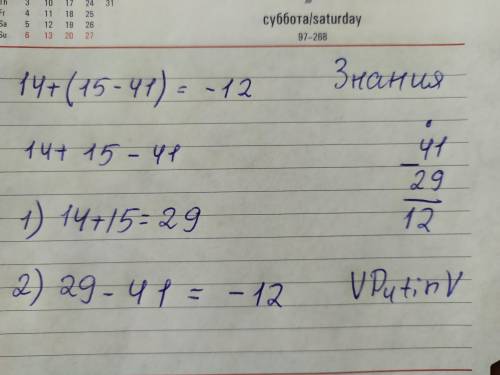 Th 3 10 17 24 31
Fr 4 11 18 25
Sa 5 12 19 26
Su 6 13 20 27
суббота/saturday
97-268
14+(15-41) = -12
Знания
14+ 15 - 41
41
- 29
12
1) 14+15=29
2) 29 - 41 = -12
VPutinV